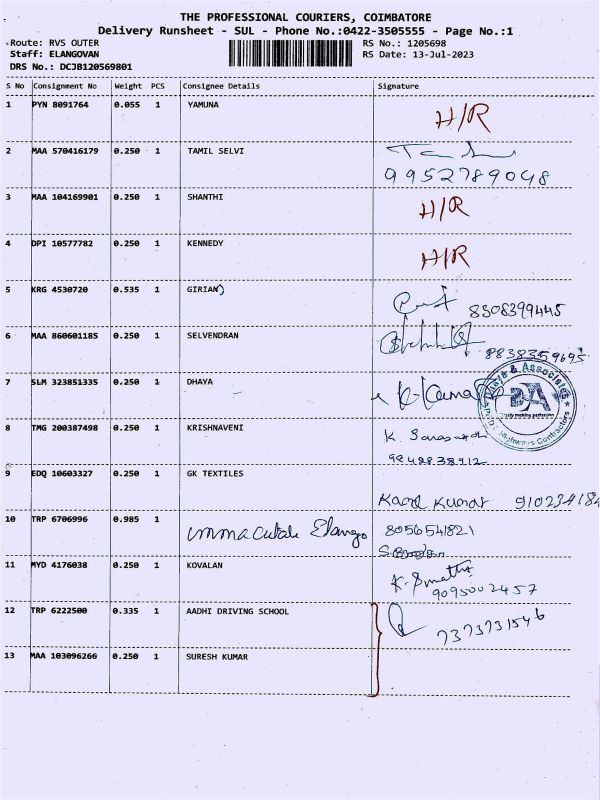 THE PROFESSIONAL COURIERS, COIMBATORE
Delivery Runsheet - SUL - Phone No.:0422-3505555 - Page No.:1
Route: RVS OUTER RS No.: 1205698
Staff: ELANGOVAN RS Date: 13-Jul-2023
DRS No.: DCJB120569801
S No Consignment No Weight PCS Consignee Details Signature
1 PYN 8091764 0.055 1 YAMUNA H/R
2 MAA 570416179 0.250 1 TAMIL SELVI
9952789048
3 MAA 104169901 0.250 1 SHANTHI H/R
4 DPI 10577782 0.250 1 KENNEDY H/R
5 KRG 4530720 0.535 1 GIRIAN
8508399445
6 MAA 860601185 0.250 1 SELVENDRAN
8838359695
7 SLM 323851335 0.250 1 DHAYA K-Kumar
& Associates
Highways Contractors
8 TMG 200387498 0.250 1 KRISHNAVENI K.
9 EDQ 10603327 0.250 1 GK TEXTILES
Kumar 910234184
10 TRP 6706996 0.985 1 Elango 8056541821
11 MYD 4176038 0.250 1 KOVALAN K.
9095002457
12 TRP 6222500 0.335 1 AADHI DRIVING SCHOOL
7373731546
13 MAA 103096266 0.250 1 SURESH KUMAR